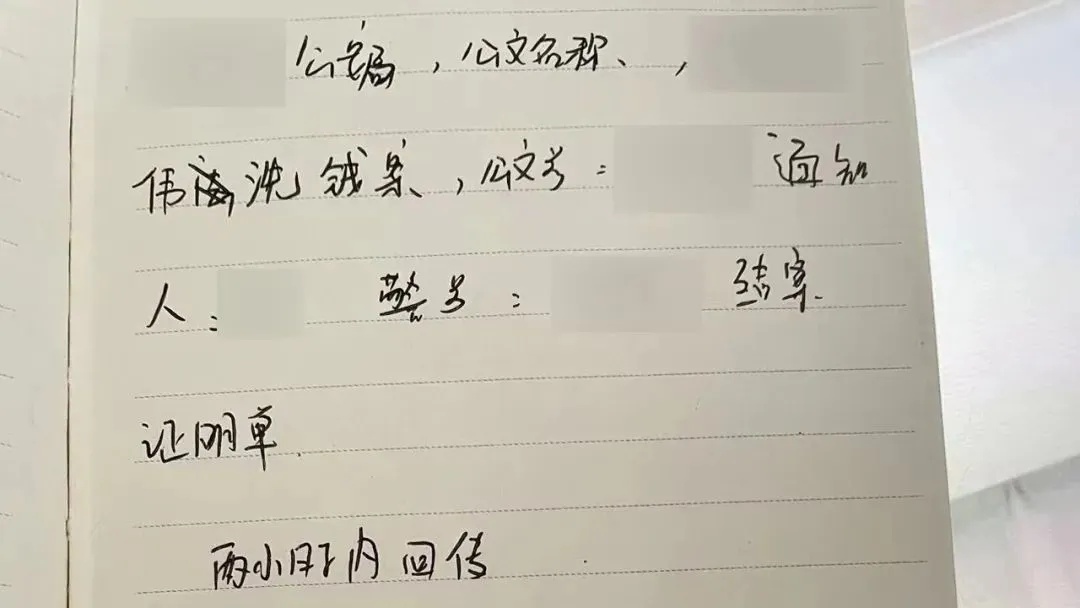 公安局，公文名称、，
伟海洗钱案，公文号： 通知
人： 警号： 结案
证明单
两小时内回传